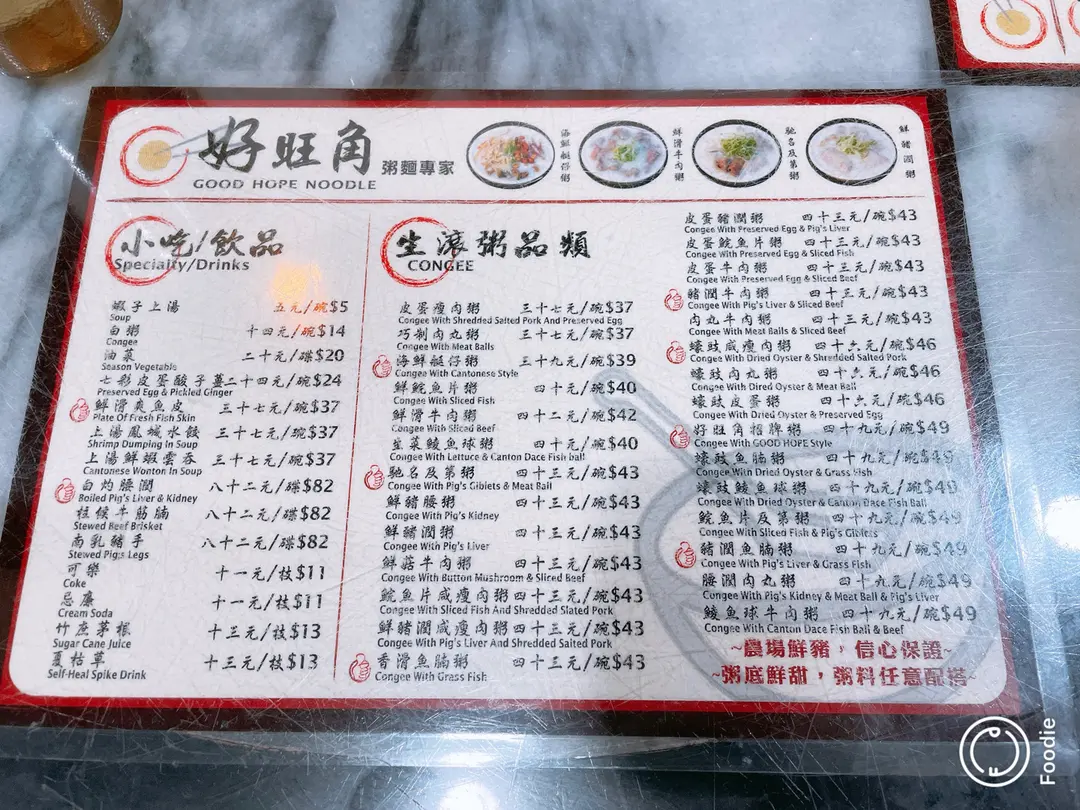 好旺角
粥麵專家
GOOD HOPE NOODLE
海鮮艇仔粥
鮮滑牛肉粥
馳名及第粥
鮮豬潤粥
小吃/飲品
Specialty/Drinks
蝦子上湯 五元/碗$5
Soup
白粥 十四元/碗$14
Congee
油菜 二十元/碟$20
Season Vegetable
七彩皮蛋酸子薑二十四元/碗$24
Preserved Egg & Pickled Ginger
鮮滑爽魚皮 三十七元/碗$37
Plate Of Fresh Fish Skin
上湯鳳城水餃 三十七元/碗$37
Shrimp Dumping In Soup
上湯鮮蝦雲吞 三十七元/碗$37
Cantonese Wonton In Soup
白灼腰潤 八十二元/碟$82
Boiled Pig's Liver & Kidney
柱候牛筋腩 八十二元/碟$82
Stewed Beef Brisket
南乳豬手 八十二元/碟$82
Stewed Pig;s Legs
可樂 十一元/枝$11
Coke
忌廉 十一元/枝$11
Cream Soda
竹蔗茅根 十三元/枝$13
Sugar Cane Juice
夏枯草 十三元/枝$13
Self-Heal Spike Drink
生滾粥品類
CONGEE
皮蛋瘦肉粥 三十七元/碗$37
Congee With Shredded Salted Pork And Preserved Egg
巧制肉丸粥 三十七元/碗$37
Congee With Meat Balls
海鮮艇仔粥 三十九元/碗$39
Congee With Cantonese Style
鮮鯇魚片粥 四十元/碗$40
Congee With Sliced Fish
鮮滑牛肉粥 四十二元/碗$42
Congee With Sliced Beef
生菜鯪魚球粥 四十元/碗$40
Congee With Lettuce & Canton Dace Fish ball
馳名及第粥 四十三元/碗$43
Congee With Pig's Giblets & Meat Ball
鮮豬腰粥 四十三元/碗$43
Congee With Pig's Kidney
鮮豬潤粥 四十三元/碗$43
Congee With Pig's Liver
鮮菇牛肉粥 四十三元/碗$43
Congee With Button Mushroom & Sliced Beef
鯇魚片咸瘦肉粥四十三元/碗$43
Congee With Sliced Fish And Shredded Slated Pork
鮮豬潤咸瘦肉粥四十三元/碗$43
Congee With Pig's Liver And Shredded Salted Pork
香滑魚腩粥 四十三元/碗$43
Congee With Grass Fish
皮蛋豬潤粥 四十三元/碗$43
Congee With Preserved Egg & Pig's Liver
皮蛋鯇魚片粥 四十三元/碗$43
Congee With Preserved Egg & Sliced Fish
皮蛋牛肉粥 四十三元/碗$43
Congee With Preserved Egg & Sliced Beef
豬潤牛肉粥 四十三元/碗$43
Congee With Pig's Liver & Sliced Beef
肉丸牛肉粥 四十三元/碗$43
Congee With Meat Balls & Sliced Beef
蠔豉咸瘦肉粥 四十六元/碗$46
Congee With Dired Oyster & Shredded Salted Pork
蠔豉肉丸粥 四十六元/碗$46
Congee With Dired Oyster & Meat Ball
蠔豉皮蛋粥 四十六元/碗$46
Congee With Dried Oyster & Preserved Egg
好旺角招牌粥 四十九元/碗$49
Congee With GOOD HOPE Style
蠔豉魚腩粥 四十九元/碗$49
Congee With Dried Oyster & Grass Fish
蠔豉鯪魚球粥 四十九元/碗$49
Congee With Dried Oyster & Canton Dace Fish Ball
鯇魚片及第粥 四十九元/碗$49
Congee With Sliced Fish & Pig's Giblets
豬潤魚腩粥 四十九元/碗$49
Congee With Pig's Liver & Grass Fish
腰潤肉丸粥 四十九元/碗$49
Congee With Pig's Kidney & Meat Ball & Pig's Liver
鯪魚球牛肉粥 四十九元/碗$49
Congee With Canton Dace Fish Ball & Beef
~農場鮮豬，信心保證~
~粥底鮮甜，粥料任意配搭~
Foodie